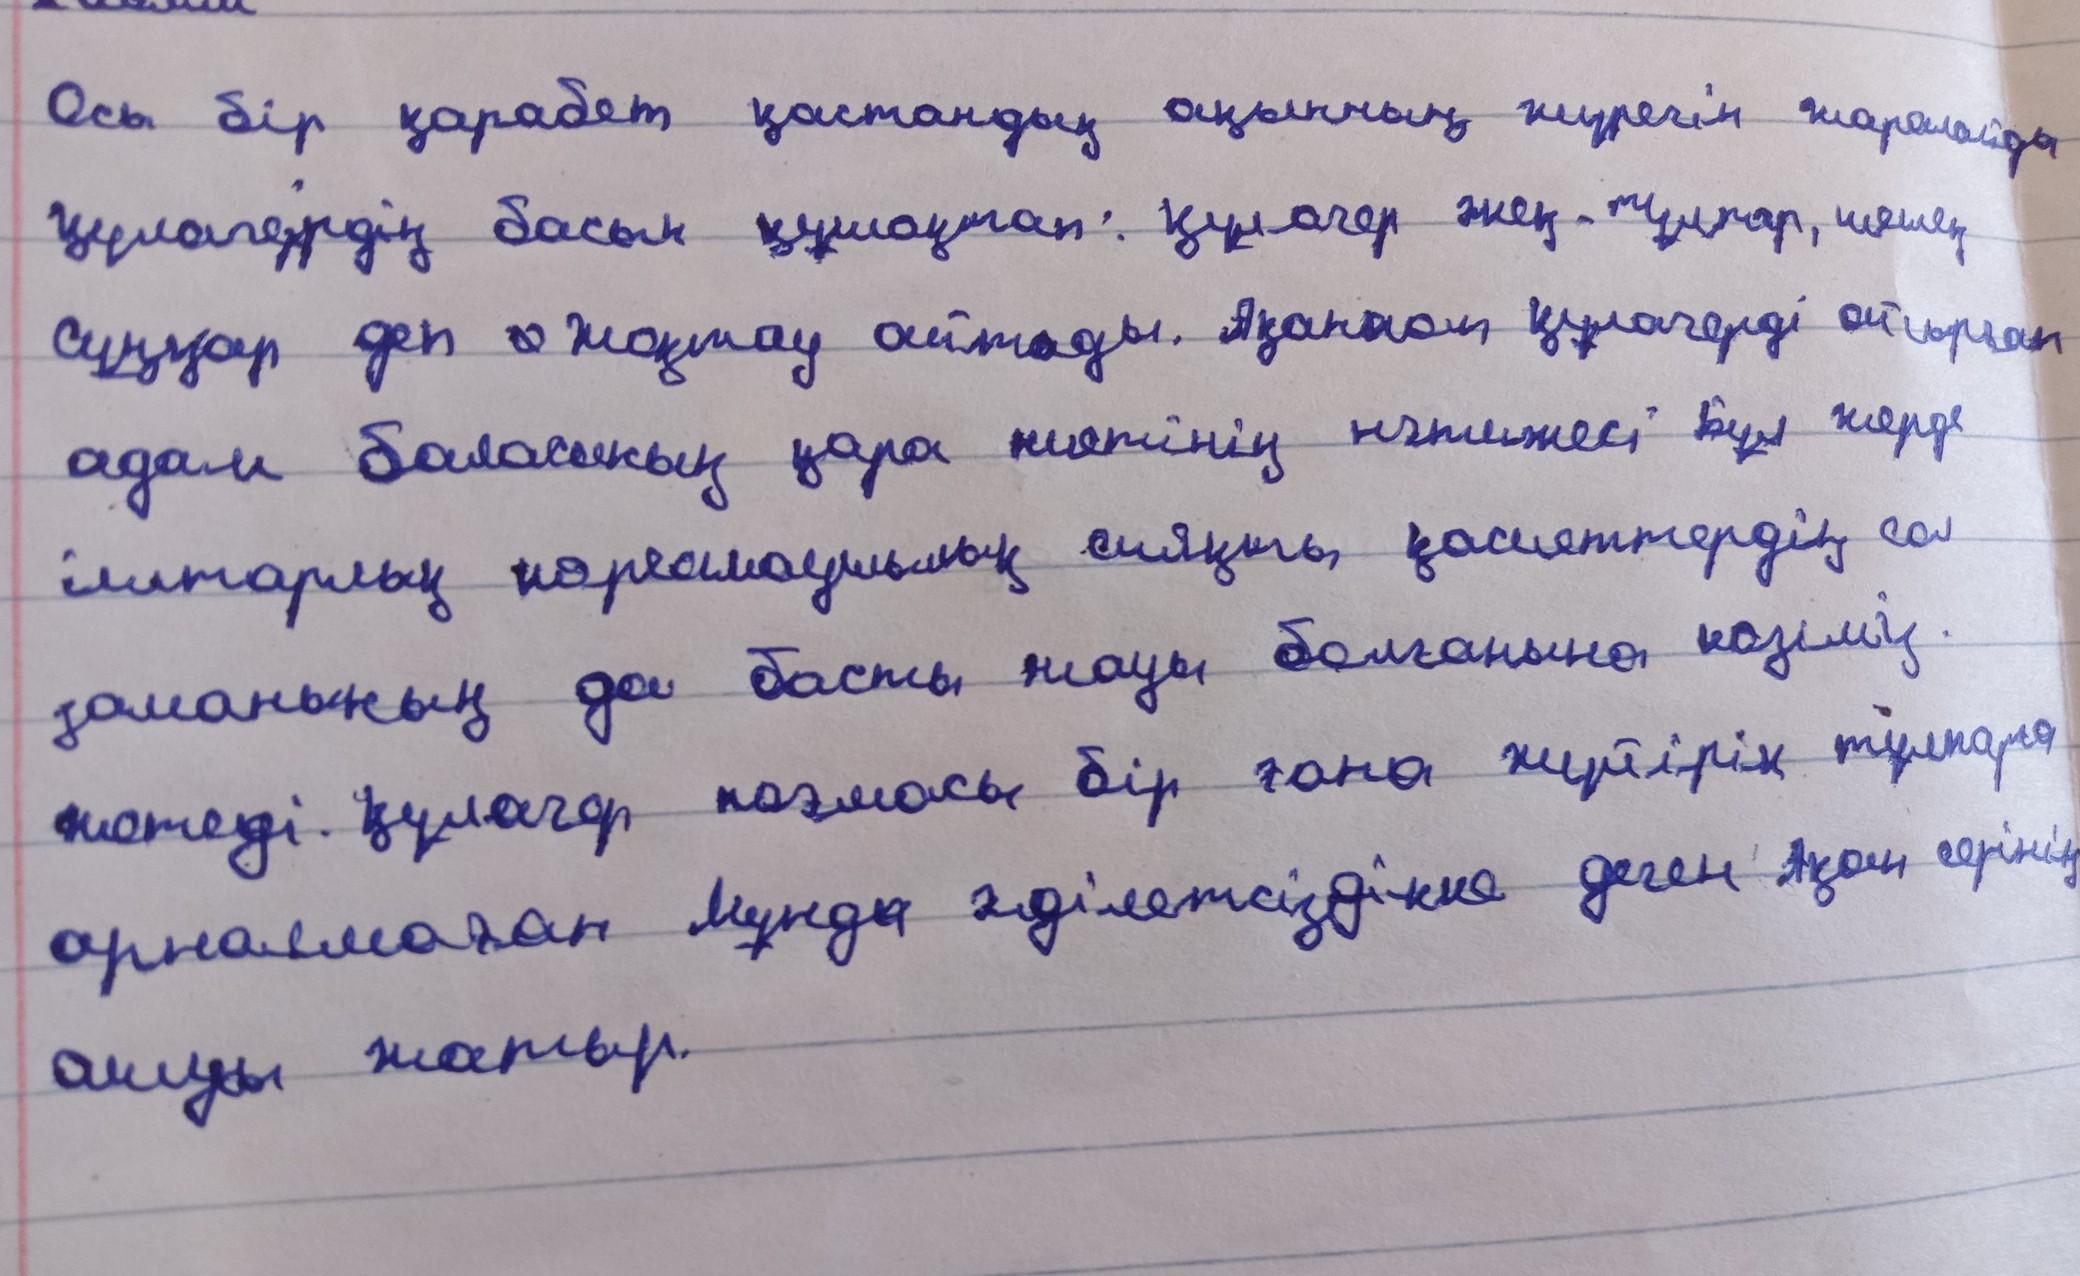 Осы бір қарабет қастандық ақынның жүрегін жаралайды
Құлагердің басын құшақтап: Құлагер жең - тұлпар, шешең
сұңқар деп жоқтау айтады. Ақаннан Құлагерді айырған
адам баласының қара ниетінің нәтижесі Бұл жерде
іштарлық көреалмаушылық сияқты қасиеттердің сол
заманының да басты жауы болғанына көзіміз
жетеді. Құлагер поэмасы бір ғана жүйрік тұлпарға
арналмаған Мұнда әділетсіздікке деген Ақан серінің
ашуы жатыр.